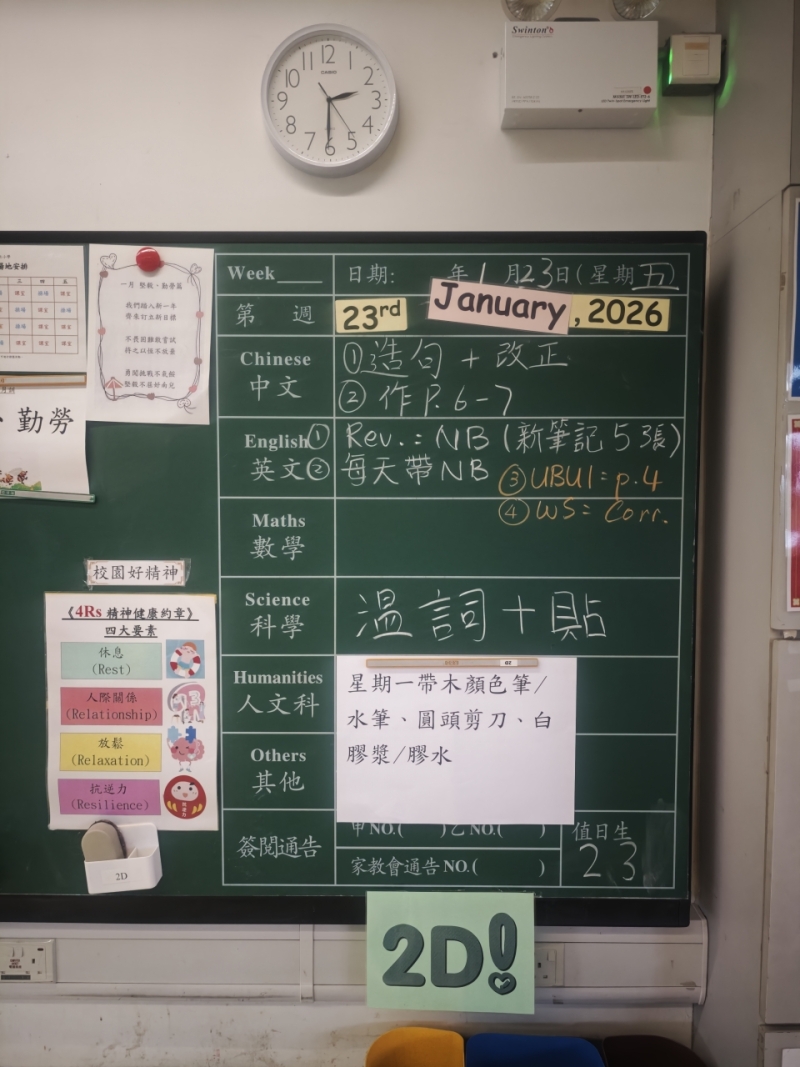 12
1
2
3
4
5
6
7
8
9
10
11
CASIO
Swinton
場地安排
二 三 四 五
勤勞
一月 堅毅、勤勞篇
我們踏入新一年
齊來訂立新目標
不畏困難敢嘗試
持之以恆不放棄
勇闖挑戰不畏艱
Week
日期: 年1月23日(星期五)
第 週
23rd January, 2026
Chinese
中文
①造句 + 改正
②作P.6-7
English
英文
① Rev.: NB (新筆記5張)
② 每天帶NB
③ UBUI: p.4
④ WS: Corr.
Maths
數學
Science
科學
溫詞+貼
Humanities
人文科
星期一帶木顏色筆/
水筆、圓頭剪刀、白
膠漿/膠水
Others
其他
簽閱通告
甲NO.( )乙NO.( )
家教會通告NO.( )
值日生
23
校園好精神
《4Rs 精神健康約章》
四大要素
休息
(Rest)
人際關係
(Relationship)
放鬆
(Relaxation)
抗逆力
(Resilience)
2D
2D!